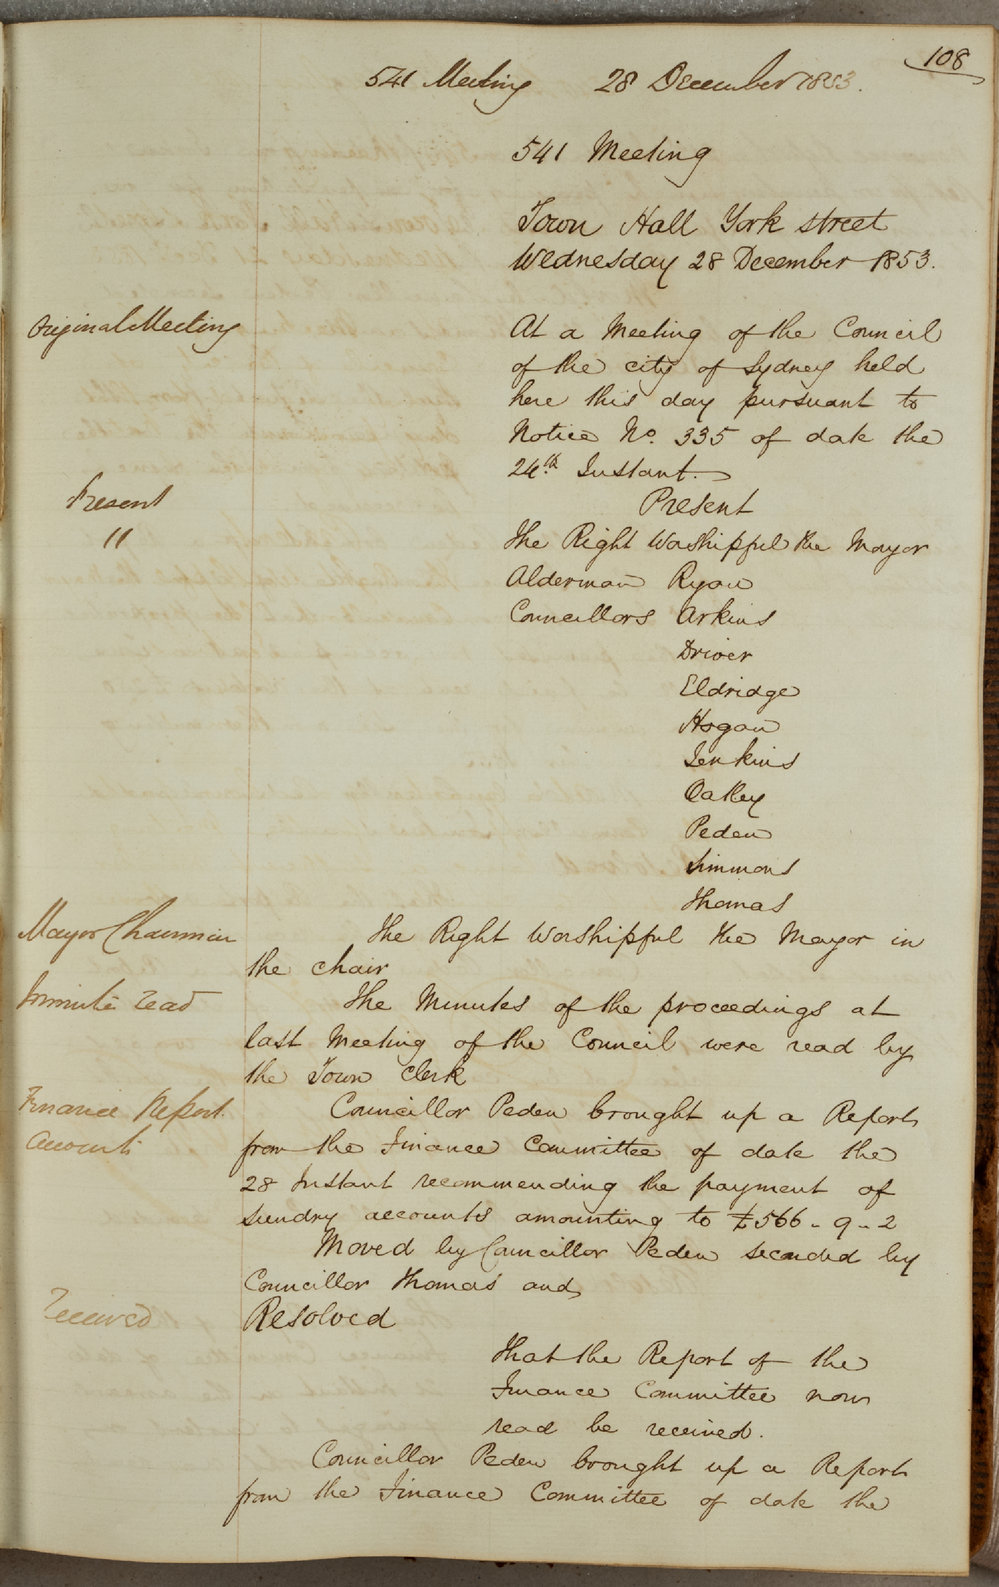 108
541 Meeting 28 December 1853.
541 Meeting
Town Hall York street
Wednesday 28 December 1853.
Original Meeting
At a Meeting of the Council
of the city of Sydney held
here this day pursuant to
Notice No. 335 of date the
24th Instant.
Present
Present
"
The Right Worshipful the Mayor
Alderman Ryan
Councillors Arkins
Driver
Eldridge
Hogan
Jenkins
Oatley
Peden
Simmons
Thomas
Mayor Chairman
The Right Worshipful the Mayor in
the chair
Minute read
The Minutes of the proceedings at
last Meeting of the Council were read by
the Town Clerk
Finance Report
Accounts
Councillor Peden brought up a Report
from the Finance Committee of date the
28 Instant recommending the payment of
sundry accounts amounting to £566-9-2
Moved by Councillor Peden seconded by
Councillor Thomas and
Received
Resolved
That the Report of the
Finance Committee now
read be received.
Councillor Peden brought up a Report
from the Finance Committee of date the